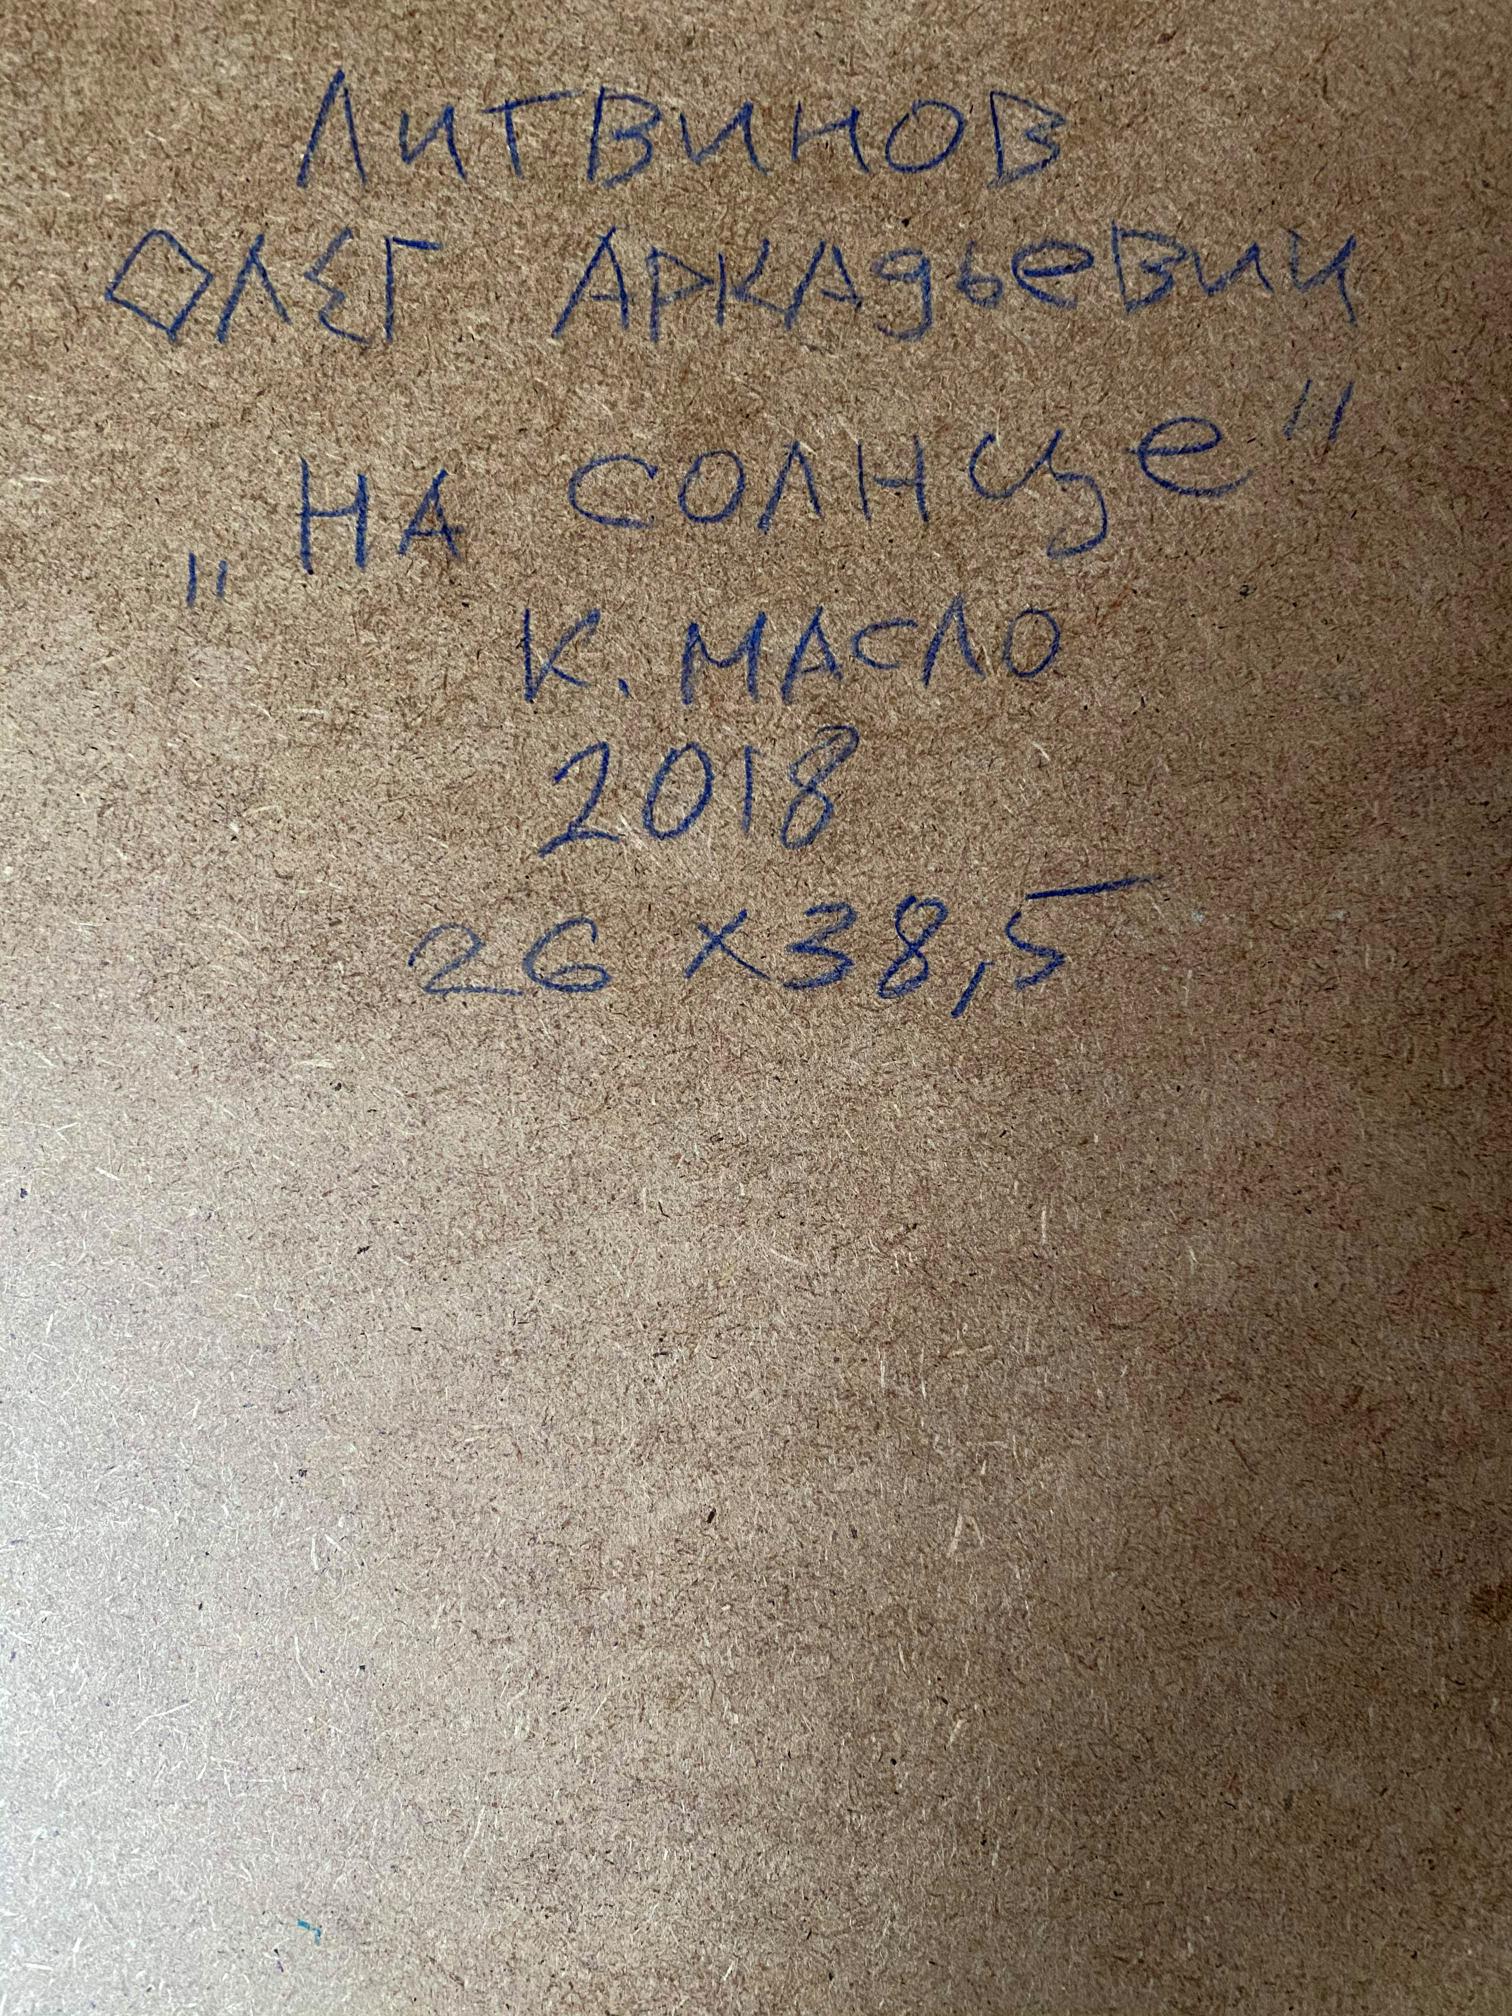 ЛИТВИНОВ
ОЛЕГ АРКАДЬЕВИЧ
„НА СОЛНЦЕ"
К. МАСЛО
2018
26 x 38,5